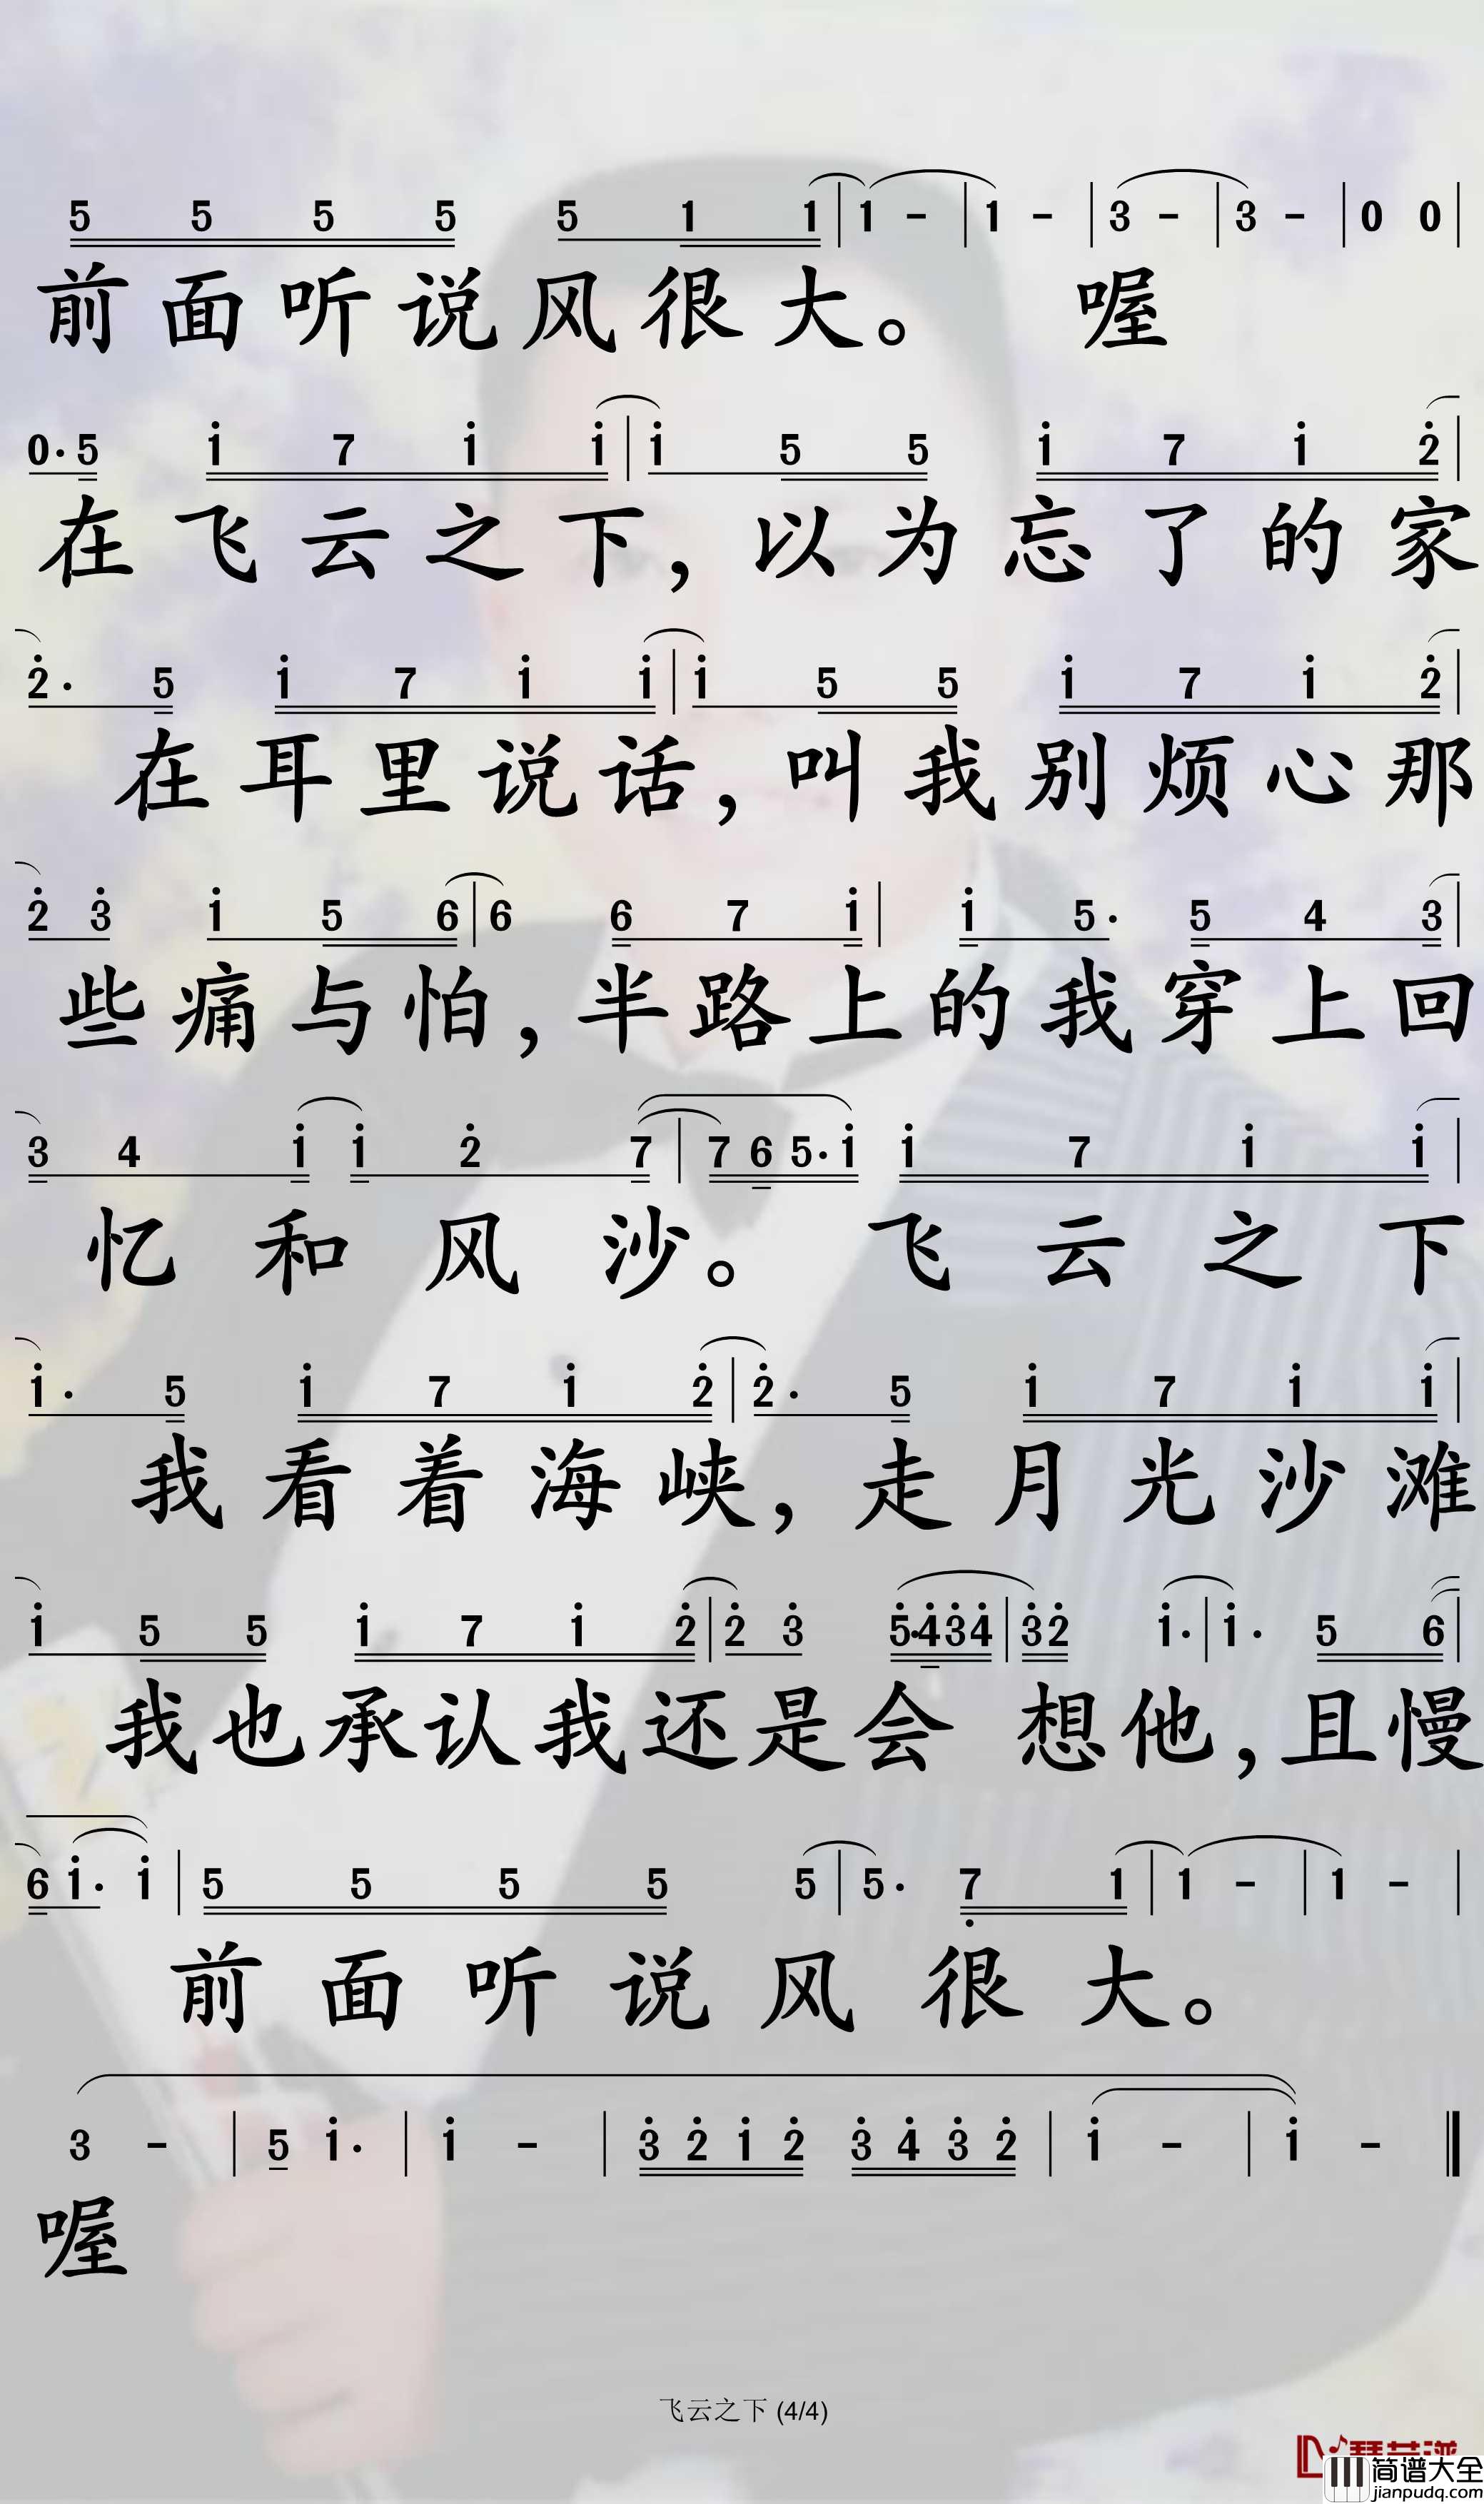 5 5 5 5 5 1 1 | 1 - | 1 - | 3 - | 3 - | 0 0 |
前面听说风很大。 喔
0· 5 1̇ 7 1̇ 1̇ | 1̇ 5 5 1̇ 7 1̇ 2̇ |
在飞云之下,以为忘了的家
2̇· 5 1̇ 7 1̇ 1̇ | 1̇ 5 5 1̇ 7 1̇ 2̇ |
在耳里说话,叫我别烦心那
2̇ 3̇ 1̇ 5 6 | 6 6 7 1̇ | 1̇ 5· 5 4 3 |
些痛与怕,半路上的我穿上回
3 4 1̇ 1̇ 2̇ 7 | 7 6 5· 1̇ 1̇ 7 1̇ 1̇ |
忆和风沙。 飞云之下
1̇· 5 1̇ 7 1̇ 2̇ | 2̇· 5 1̇ 7 1̇ 1̇ |
我看着海峡,走月光沙滩
1̇ 5 5 1̇ 7 1̇ 2̇ | 2̇ 3̇ 5̇· 4̇ 3̇ 4̇ | 3̇ 2̇ 1̇· | 1̇· 5 6 |
我也承认我还是会 想他,且慢
6 1̇· 1̇ | 5 5 5 5 5 | 5· 7̣ 1 | 1 - | 1 - |
前面听说风很大。
3 - | 5 1̇· | 1̇ - | 3̇ 2̇ 1̇ 2̇ 3̇ 4̇ 3̇ 2̇ | 1̇ - | 1̇ - ‖
喔
飞云之下 (4/4)
简谱大全
jianpudq.com